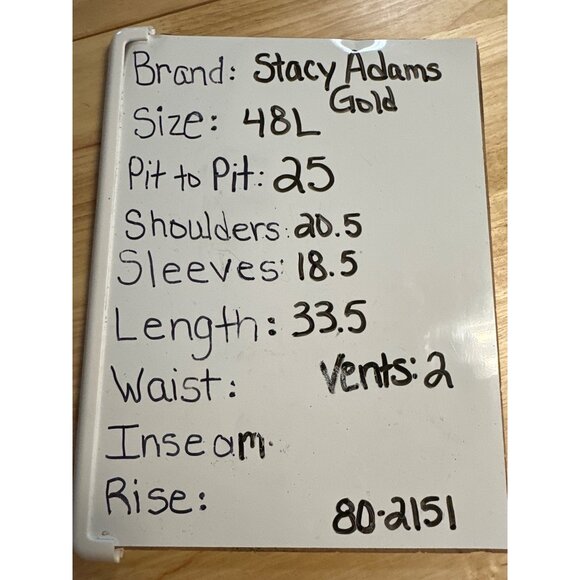 Brand: Stacy Adams
Gold
Size: 48L
Pit to Pit: 25
Shoulders: 20.5
Sleeves: 18.5
Length: 33.5
Waist: Vents: 2
Inseam.
Rise:
80-2151